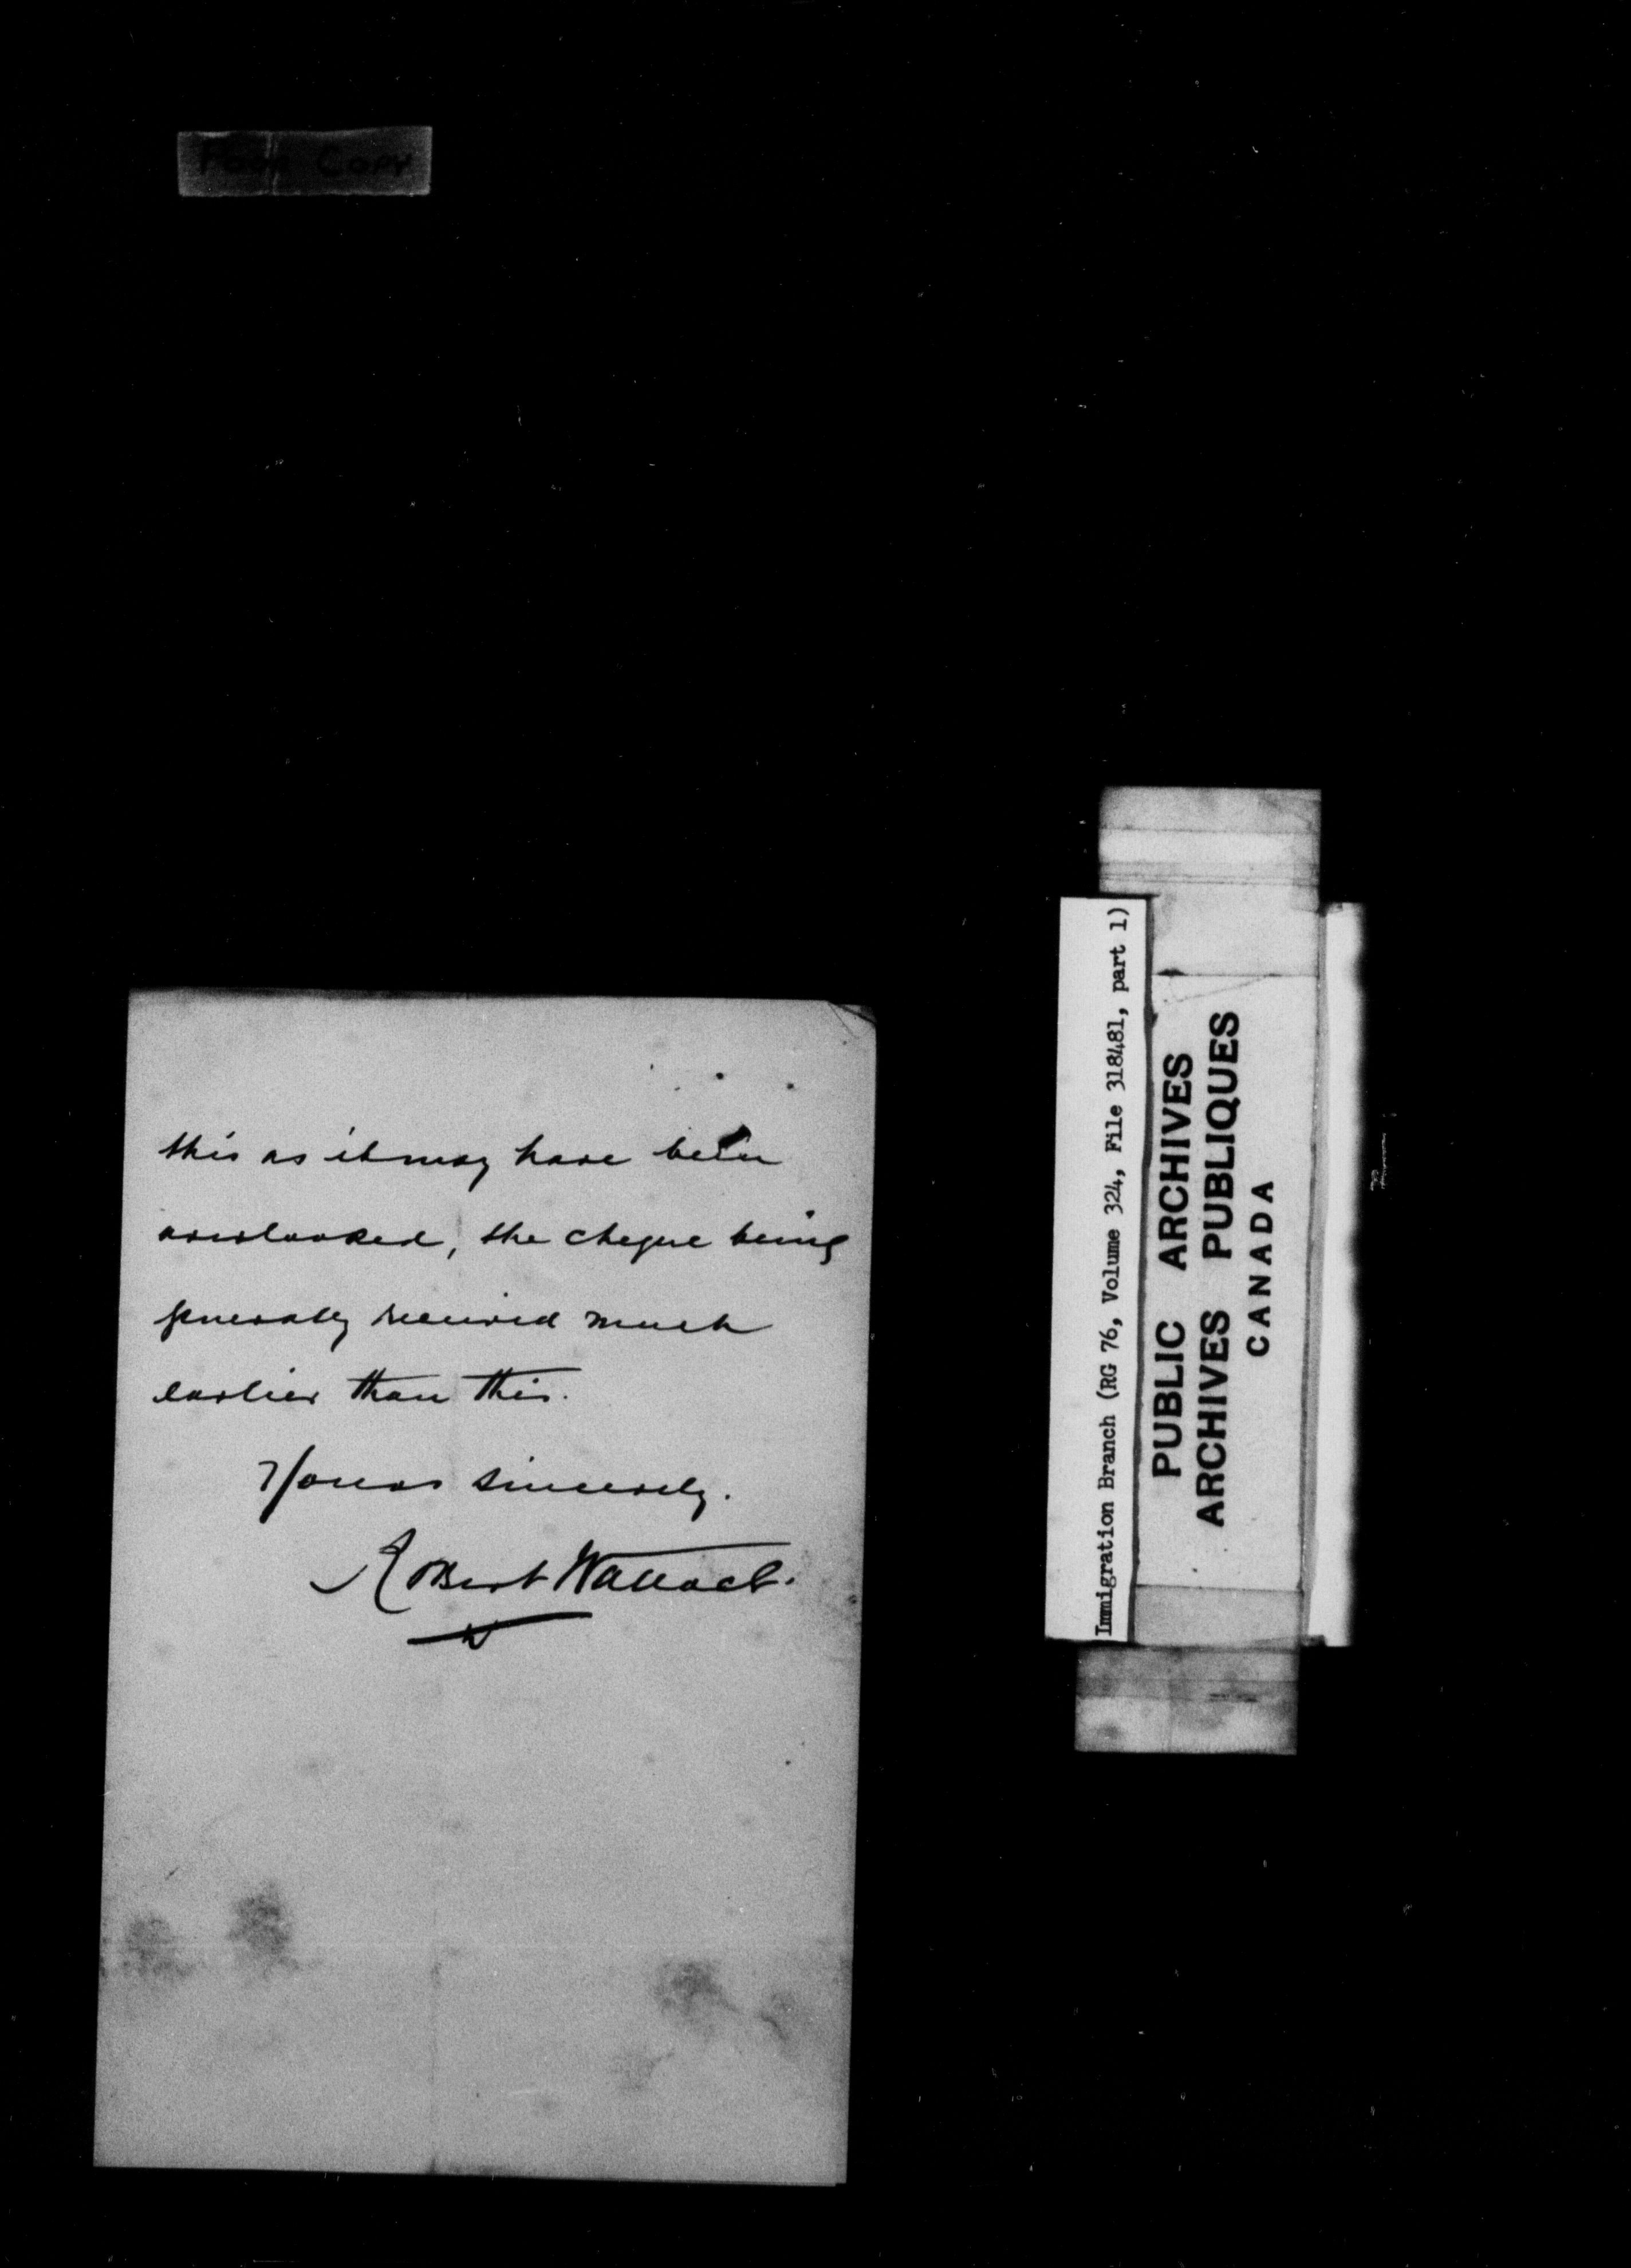 Poor Copy
this as it may have been
overlooked, the cheque being
generally received much
earlier than this.
Yours sincerely.
Robert Wallace.
Immigration Branch (RG 76, Volume 324, File 318481, part 1)
PUBLIC ARCHIVES
ARCHIVES PUBLIQUES
CANADA